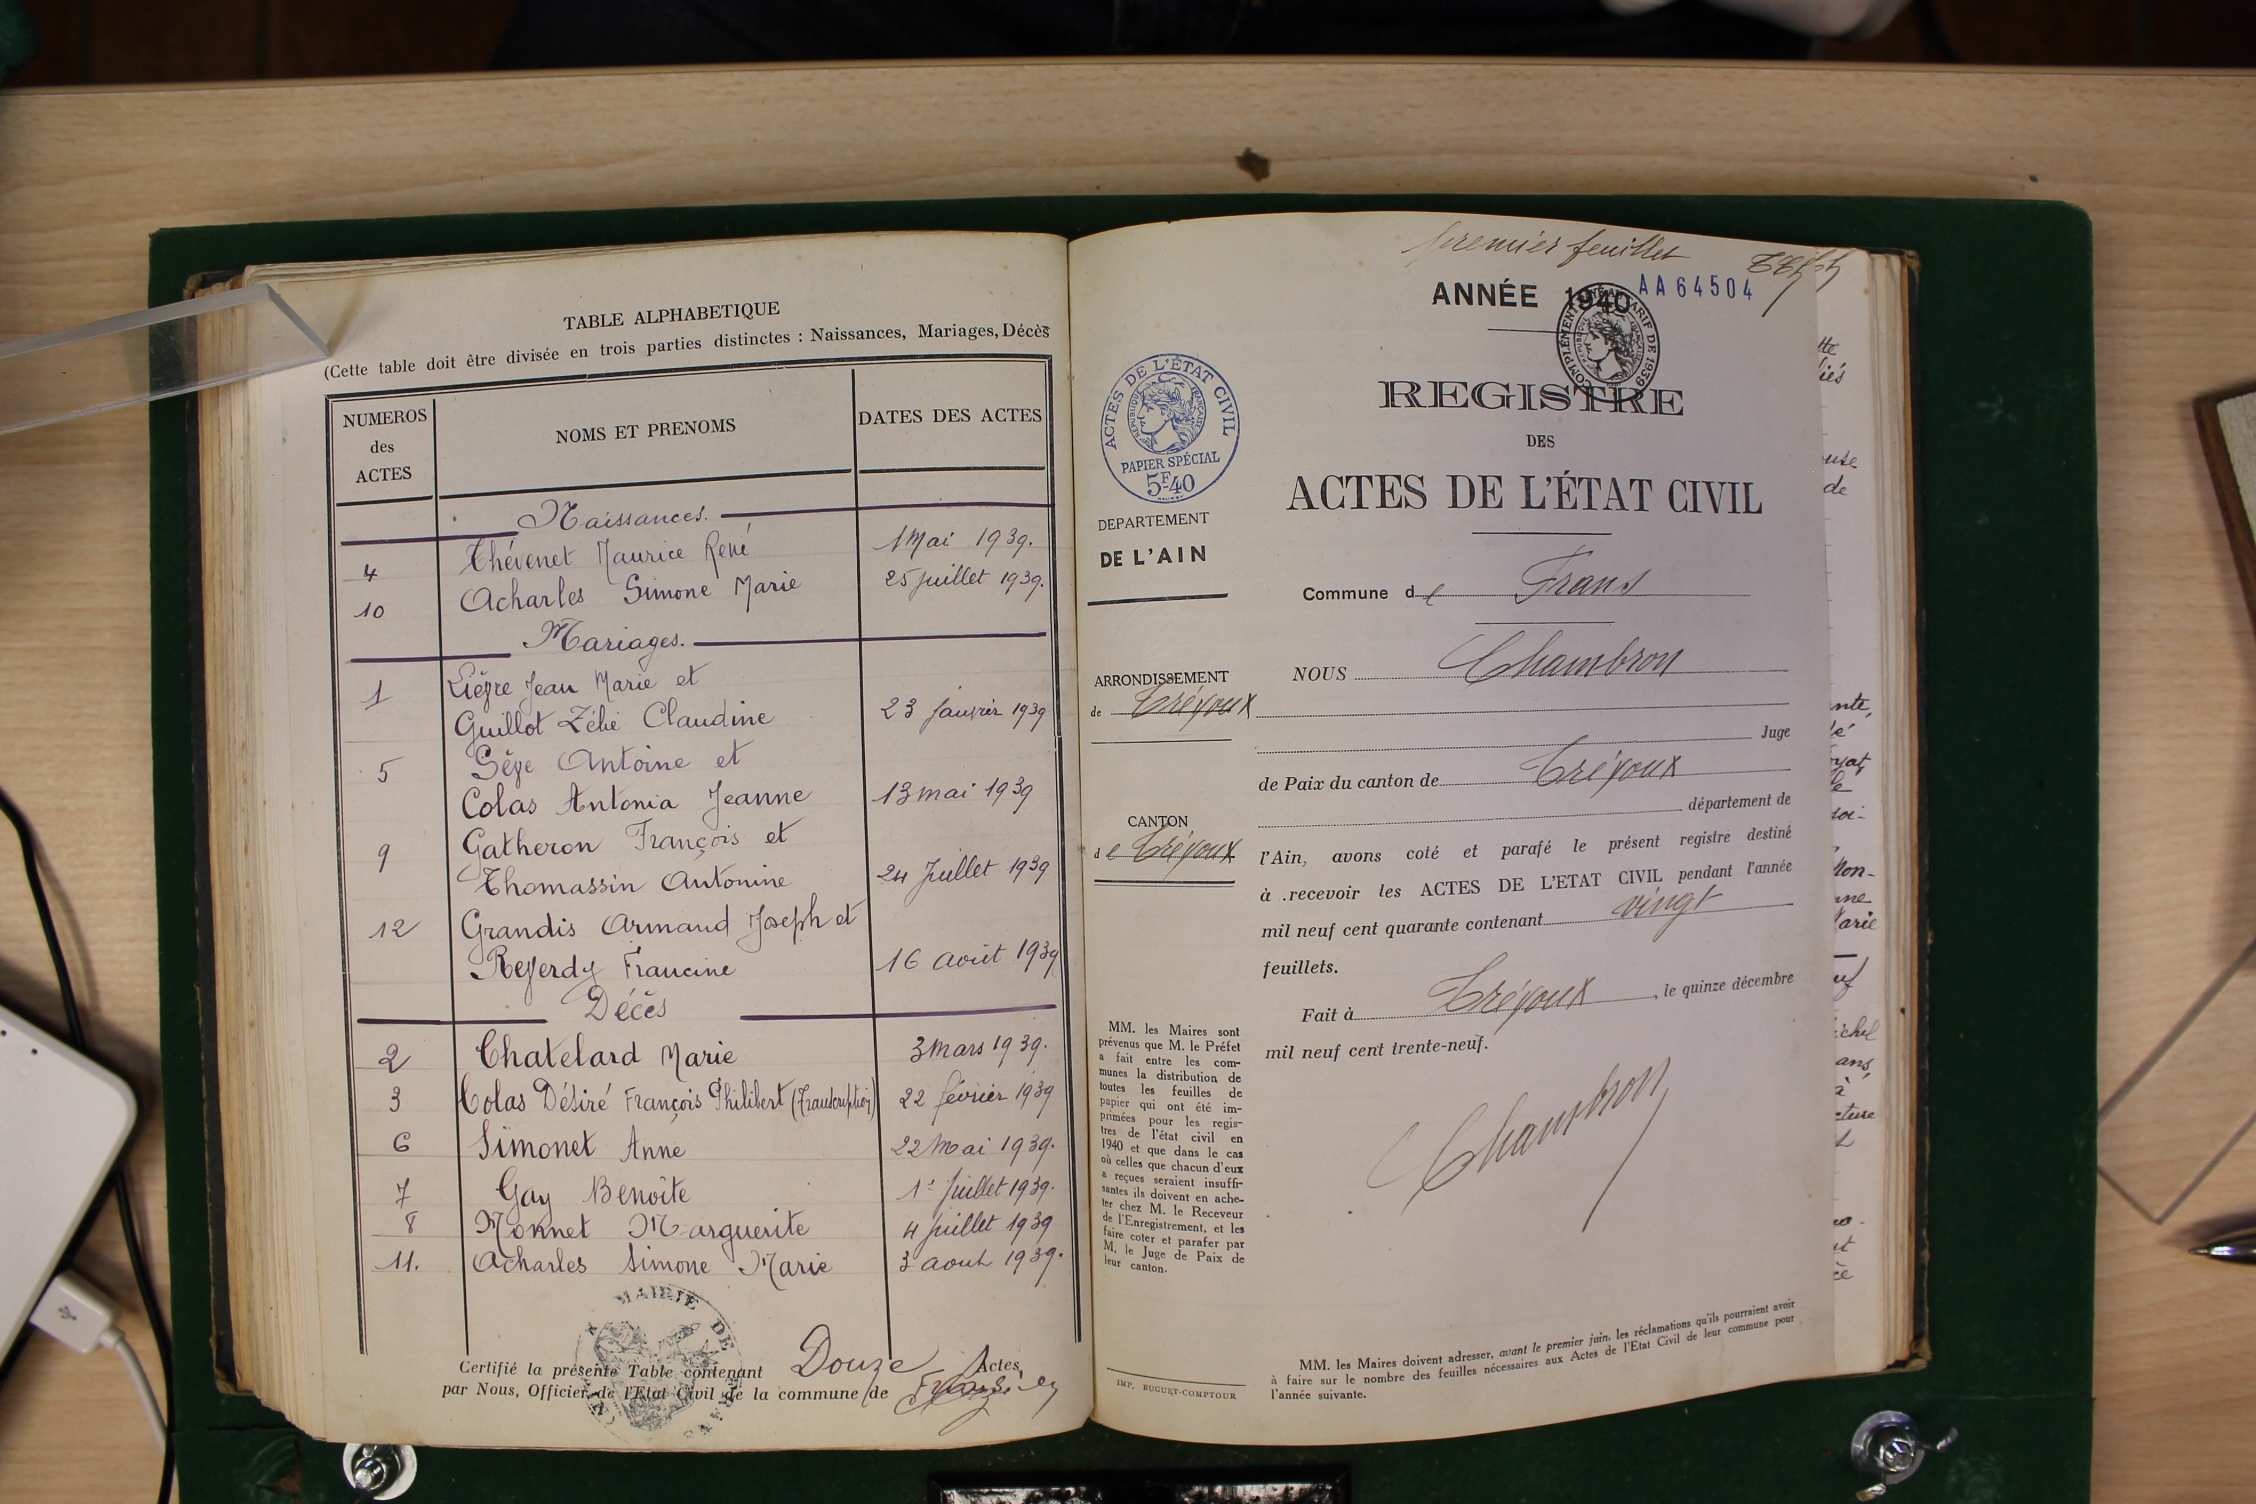 TABLE ALPHABETIQUE
(Cette table doit être divisée en trois parties distinctes : Naissances, Mariages, Décès
NUMEROS
des
ACTES
NOMS ET PRENOMS
DATES DES ACTES
Naissances.
4 Thévenet Maurice René 1 Mai 1939.
10 Acharles Simone Marie 25 juillet 1939.
Mariages.
1 Lièvre Jean Marie et
Guillot Zélie Claudine 23 janvier 1939
5 Sève Antoine et
Colas Antonia Jeanne 13 mai 1939
9 Gatheron François et
Thomassin Antonine 24 Juillet 1939
12 Grandis Armand Joseph et
Reverdy Francine 16 août 1939
Décès
2 Chatelard Marie 3 mars 1939.
3 Colas Désiré François Philibert (Transcription) 22 février 1939
6 Simonet Anne 22 Mai 1939.
7 Gay Benoîte 1er Juillet 1939.
8 Monnet Marguerite 4 juillet 1939
11. Acharles Simone Marie 3 aout 1939.
MAIRIE DE
Certifié la présente Table contenant Douze Actes,
par Nous, Officier de l'Etat Civil de la commune de
premier feuillet
ANNÉE 1940
AA64504
COMPLÉMENT TARIF DE 1939
ACTES DE L'ÉTAT CIVIL
RÉPUBLIQUE FRANÇAISE
PAPIER SPÉCIAL
5F40
REGISTRE
DES
ACTES DE L'ÉTAT CIVIL
DEPARTEMENT
DE L'AIN
Commune de Frans
ARRONDISSEMENT
de Trévoux
CANTON
de Trévoux
NOUS Chambron
Juge
de Paix du canton de Trévoux
département de
l'Ain, avons coté et parafé le présent registre destiné
à recevoir les ACTES DE L'ETAT CIVIL pendant l'année
mil neuf cent quarante contenant vingt
feuillets.
Fait à Trévoux, le quinze décembre
mil neuf cent trente-neuf.
Chambron
MM. les Maires sont
prévenus que M. le Préfet
a fait entre les com-
munes la distribution de
toutes les feuilles de
papier qui ont été im-
primées pour les regis-
tres de l'état civil en
1940 et que dans le cas
où celles que chacun d'eux
a reçues seraient insuffi-
santes ils doivent en ache-
ter chez M. le Receveur
de l'Enregistrement, et les
faire coter et parafer par
M. le Juge de Paix de
leur canton.
IMP. BUGUET-COMPTOUR
MM. les Maires doivent adresser, avant le premier juin, les réclamations qu'ils pourraient avoir
à faire sur le nombre des feuilles nécessaires aux Actes de l'Etat Civil de leur commune pour
l'année suivante.